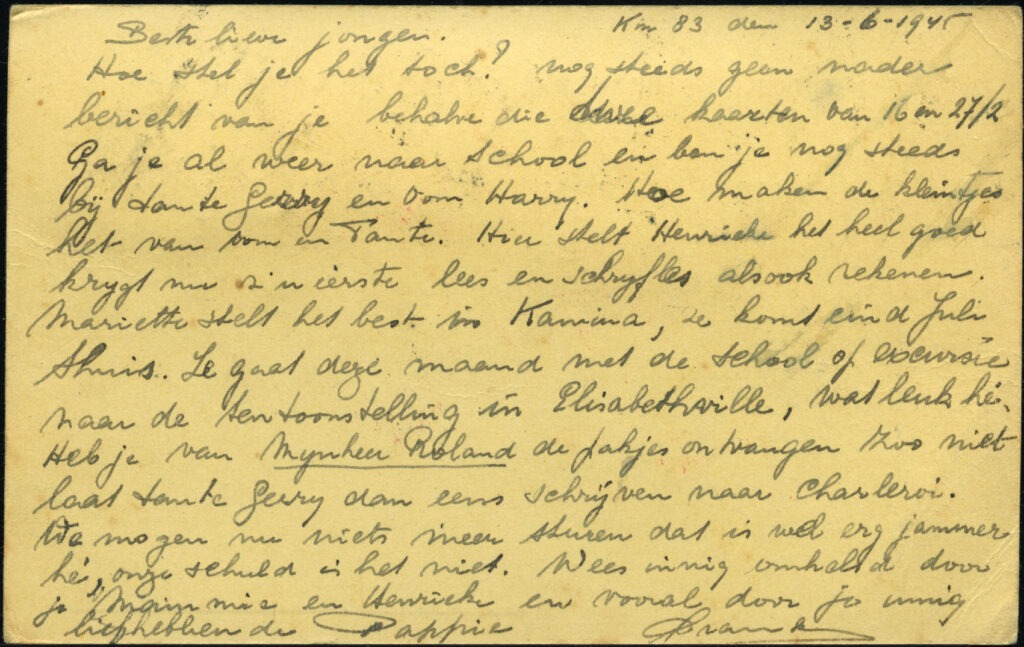 Beste lieve jongen. Km 83 den 13-6-1945
Hoe stel je het toch? nog steeds geen nader
bericht van je behalve die twee kaarten van 16 en 27/2
Ga je al weer naar school en ben je nog steeds
bij tante Gerry en Oom Harry. Hoe maken de kleintjes
het van Oom en Tante. Hier stelt Henrieke het heel goed
krygt nu z'n eerste lees en schryfles alsook rekenen.
Mariette stelt het best in Kamina, ze komt eind Juli
thuis. Ze gaat deze maand met de school of excursie
naar de tentoonstelling in Elisabethville, wat leuk hé.
Heb je van Mynheer Roland de pakjes ontvangen Zoo niet
laat tante Gerry dan eens schrijven naar Charleroi.
We mogen nu niets meer sturen dat is wel erg jammer
hé, onze schuld is het niet. Wees innig omhelsd door
je Mammie en Henrieke en vooral door je innig
liefhebbende Pappie